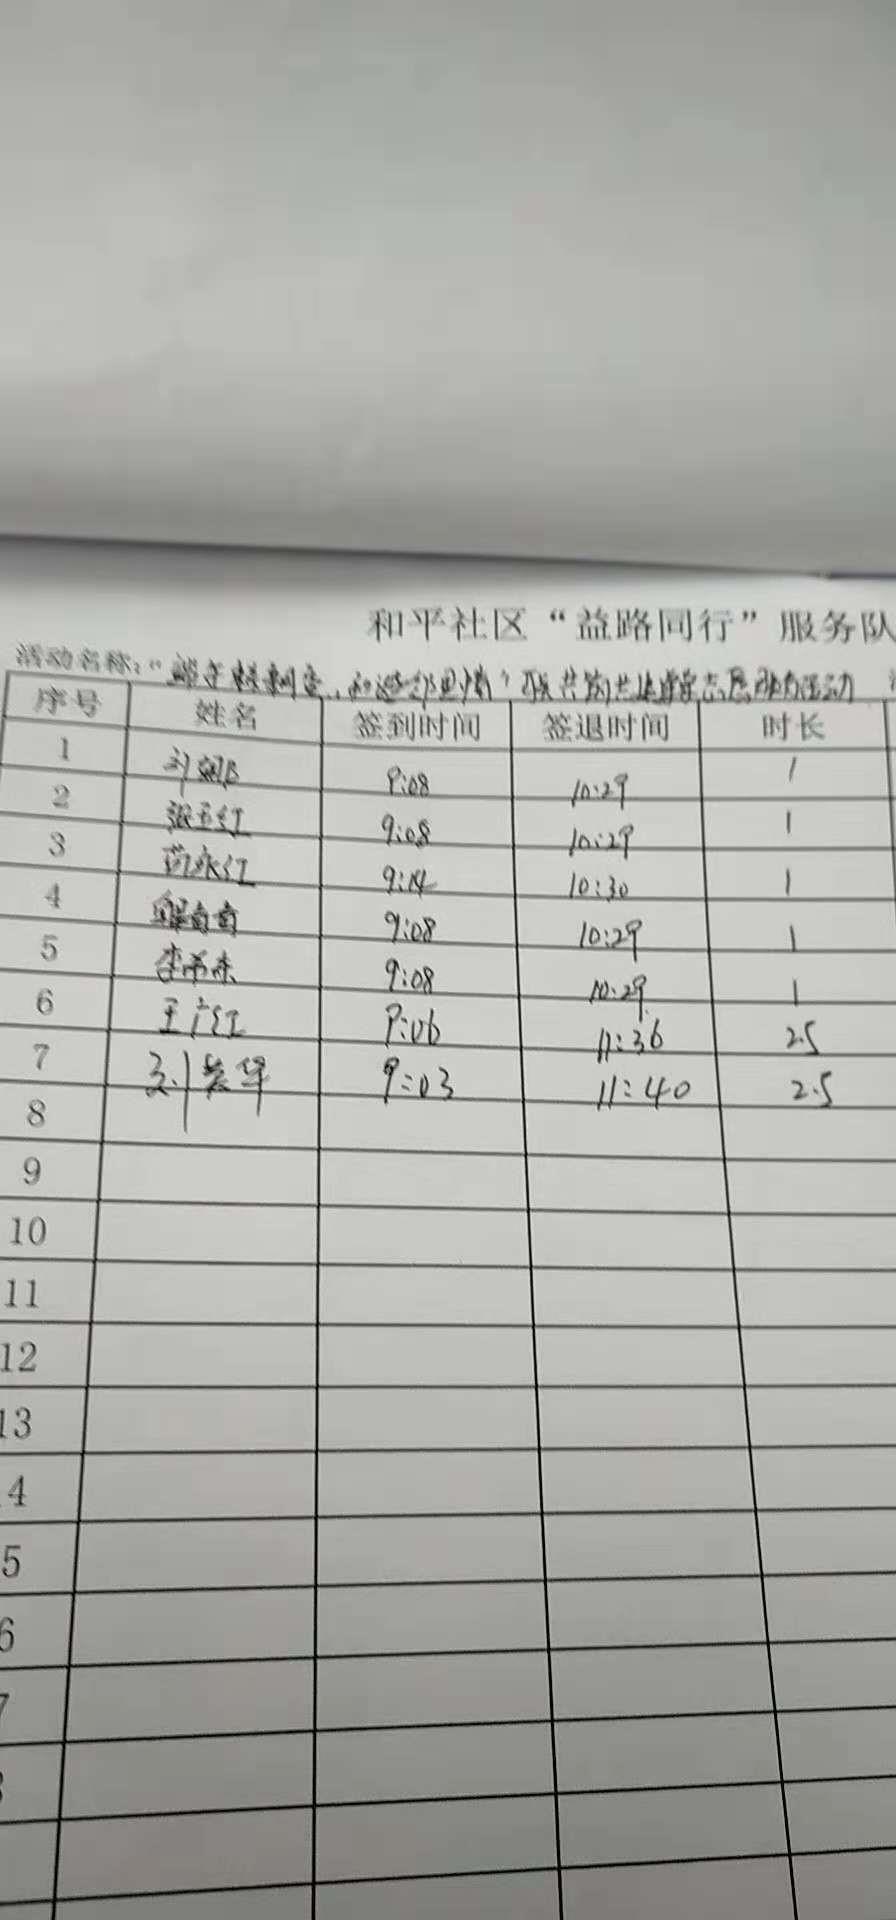 和平社区“益路同行”服务队
活动名称：“ 和谐邻里情”联共驻共建 志愿服务活动
序号 姓名 签到时间 签退时间 时长
1 9:08 10:29 1
2 张玉红 9:08 10:29 1
3 范永红 9:14 10:30 1
4 9:08 10:29 1
5 李希东 9:08 10:29 1
6 王广红 9:06 11:36 2.5
7 刘芸华 9:03 11:40 2.5
8
9
10
11
12
13
4
5
6
7